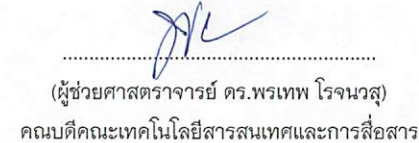 (ผู้ช่วยศาสตราจารย์ ดร.พรเทพ โรจนวสุ)
คณบดีคณะเทคโนโลยีสารสนเทศและการสื่อสาร